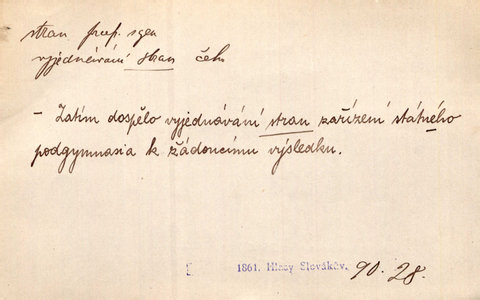 stran prep. sgen
vyjednávání stran čeho
– Zatím dospělo vyjednávání stran zařízení státného
podgymnasia k žádoucímu výsledku.
1861. Hlasy Slovákův. 90. 28.